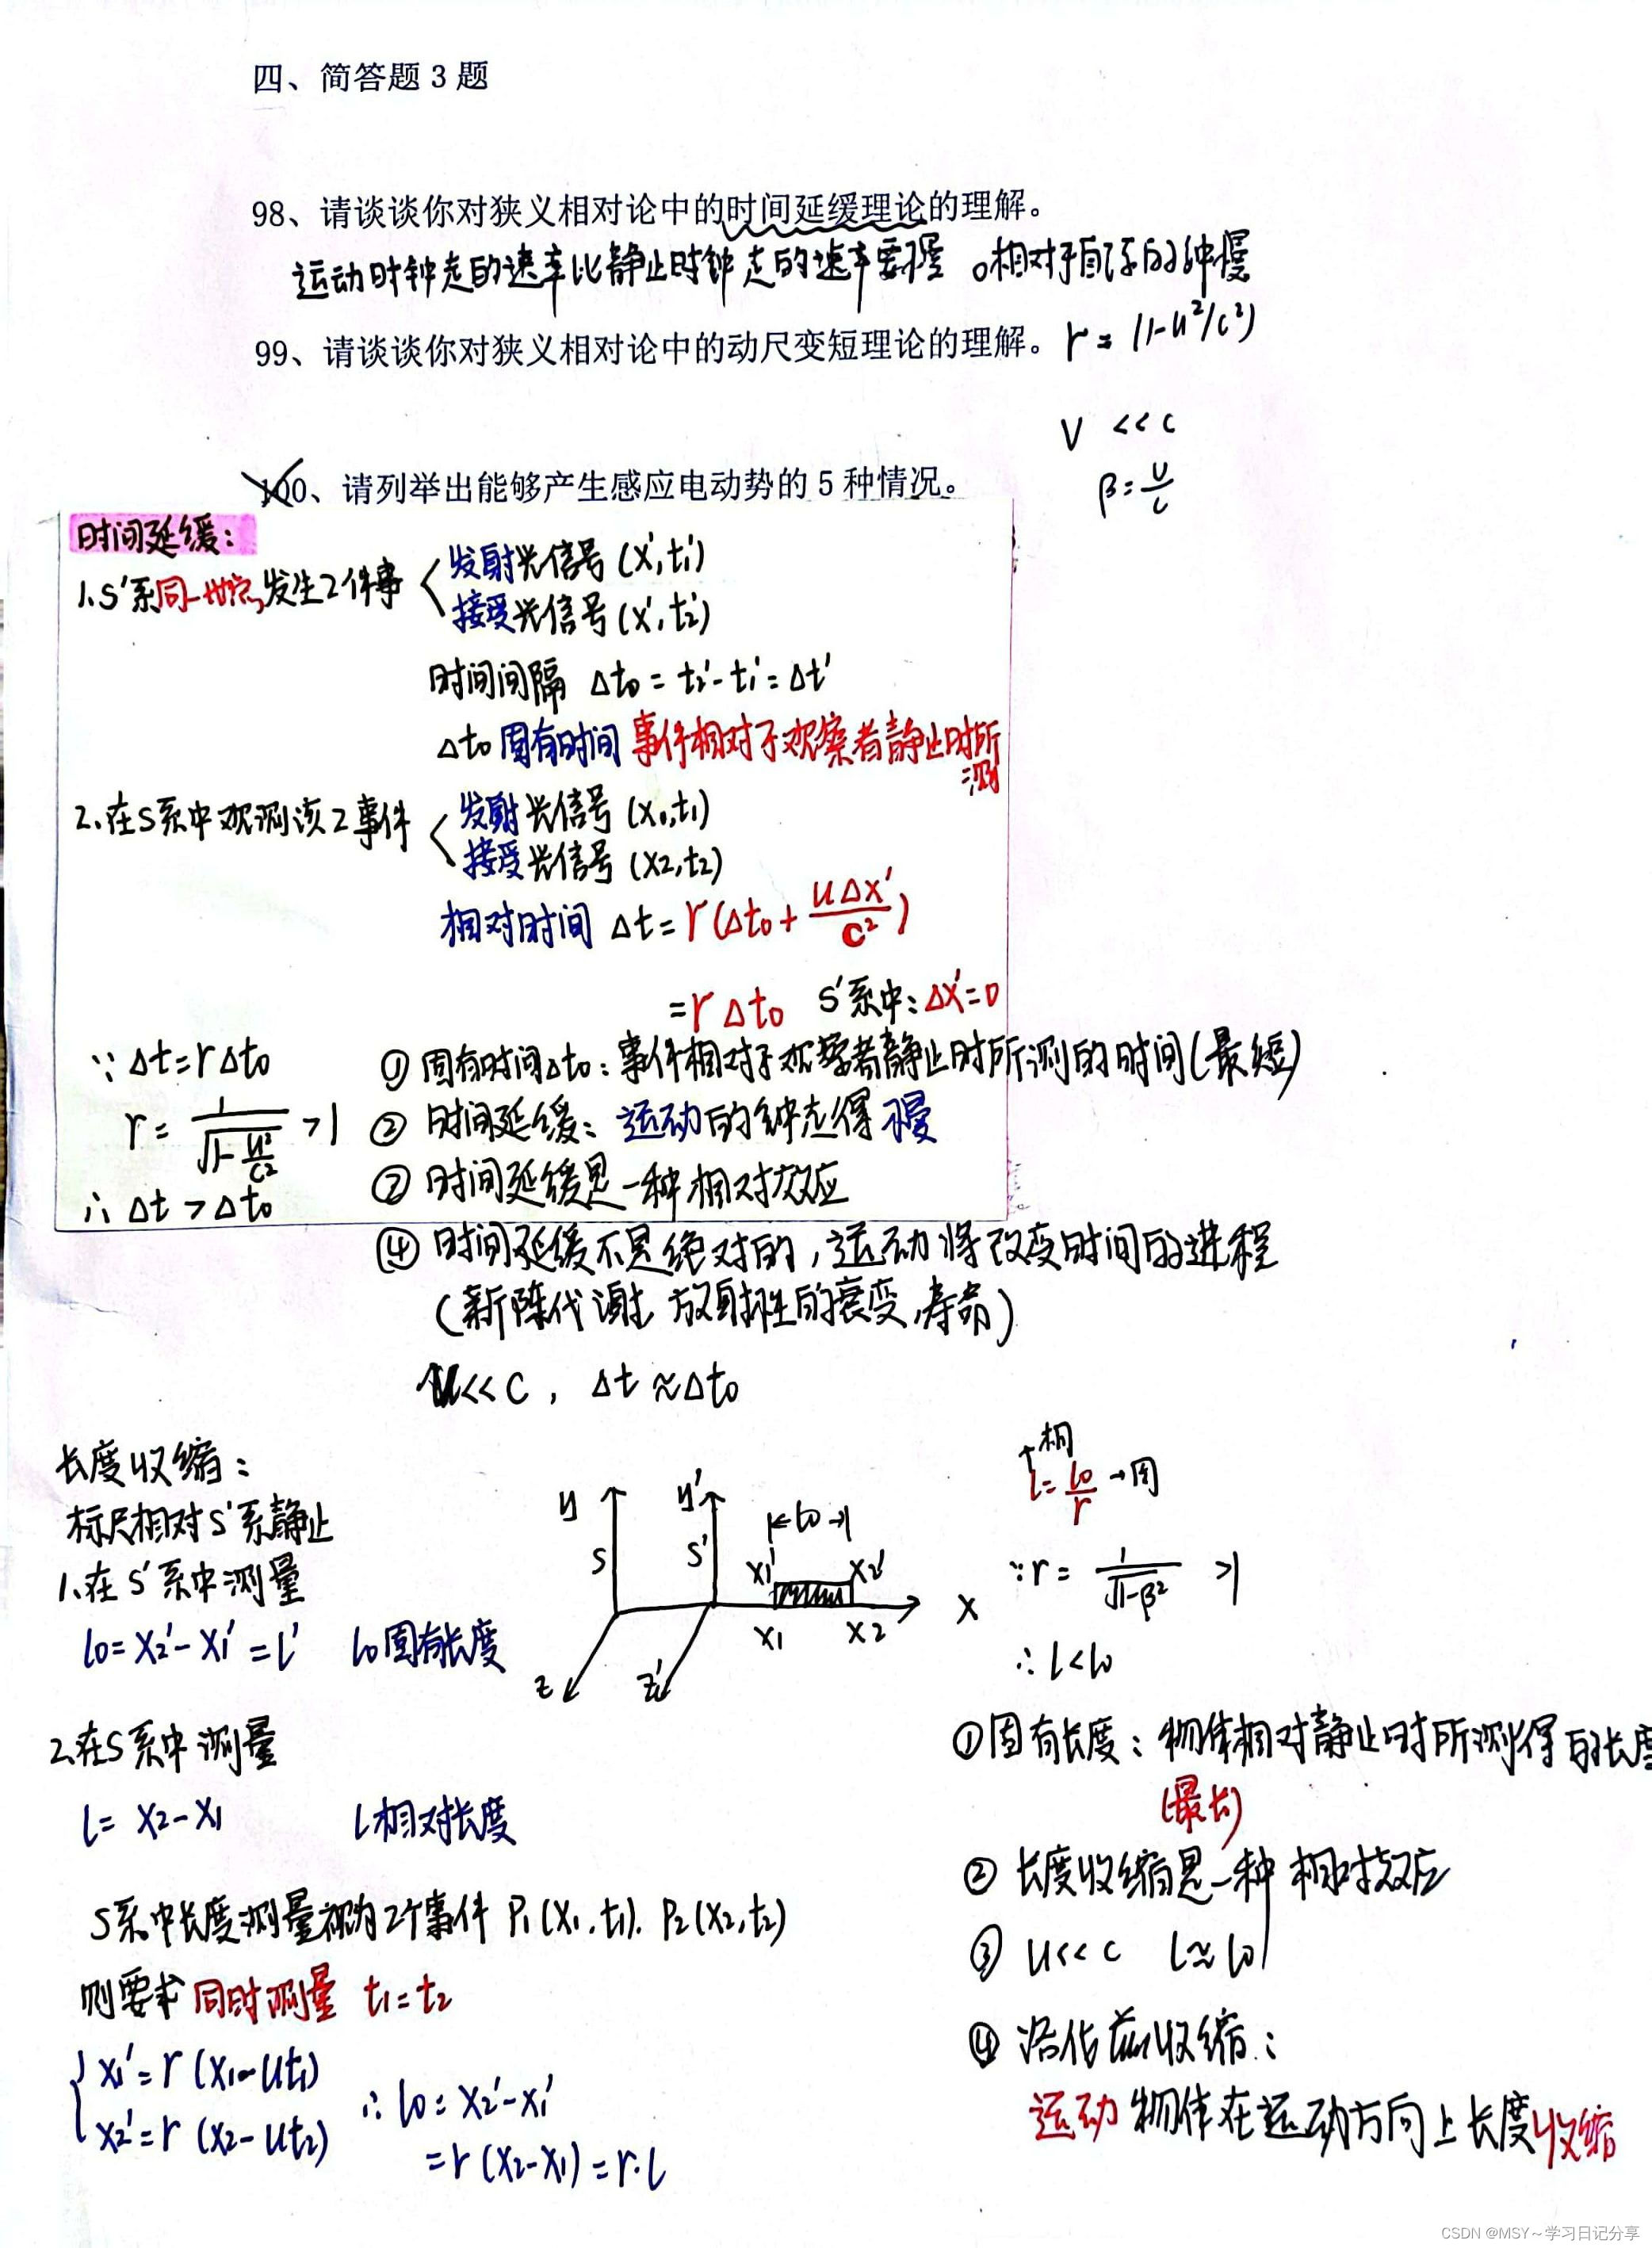 四、简答题 3 题
98、请谈谈你对狭义相对论中的时间延缓理论的理解。
运动时钟走的速率比静止时钟走的速率要慢 。相对于自己的钟慢
99、请谈谈你对狭义相对论中的动尺变短理论的理解。 r = (1-u²/c²)
V << c
β = u/c
100、请列举出能够产生感应电动势的 5 种情况。
时间延缓:
1、S'系同一地点,发生2件事
发射光信号 (x',t1')
接受光信号 (x',t2')
时间间隔 Δt0 = t2'-t1' = Δt'
Δt0 固有时间 事件相对于观察者静止时所测
2、在S系中观测该2事件
发射光信号 (x1,t1)
接受光信号 (x2,t2)
相对时间 Δt = r(Δt0 + uΔx'/c²)
= rΔt0 S'系中: Δx'=0
∵ Δt = rΔt0
r = 1/√(1-u²/c²) >1
∴ Δt > Δt0
① 固有时间Δt0: 事件相对于观察者静止时所测的时间(最短)
② 时间延缓: 运动的钟走得慢
③ 时间延缓是一种相对效应
④ 时间延缓不是绝对的,运动将改变时间的进程
(新陈代谢、放射性的衰变,寿命)
u<<c, Δt≈Δt0
长度收缩:
标尺相对S'系静止
1、在S'系中测量
l0 = x2'-x1' = l' l0 固有长度
2、在S系中测量
l = x2-x1 l相对长度
S系中长度测量视为2个事件 P1(x1,t1). P2(x2,t2)
则要求同时测量 t1=t2
x1' = r(x1-ut1)
x2' = r(x2-ut2)
∴ l0 = x2'-x1'
= r(x2-x1) = r·l
y y'
S S'
l0
x1' x2'
x1 x2 x
z z'
相
l = l0/r → 固
∵ r = 1/√(1-β²) >1
∴ l<l0
① 固有长度: 物体相对静止时所测得的长度
(最长)
② 长度收缩是一种相对效应
③ u<<c l≈l0
④ 洛伦兹收缩:
运动物体在运动方向上长度收缩
CSDN @MSY～学习日记分享